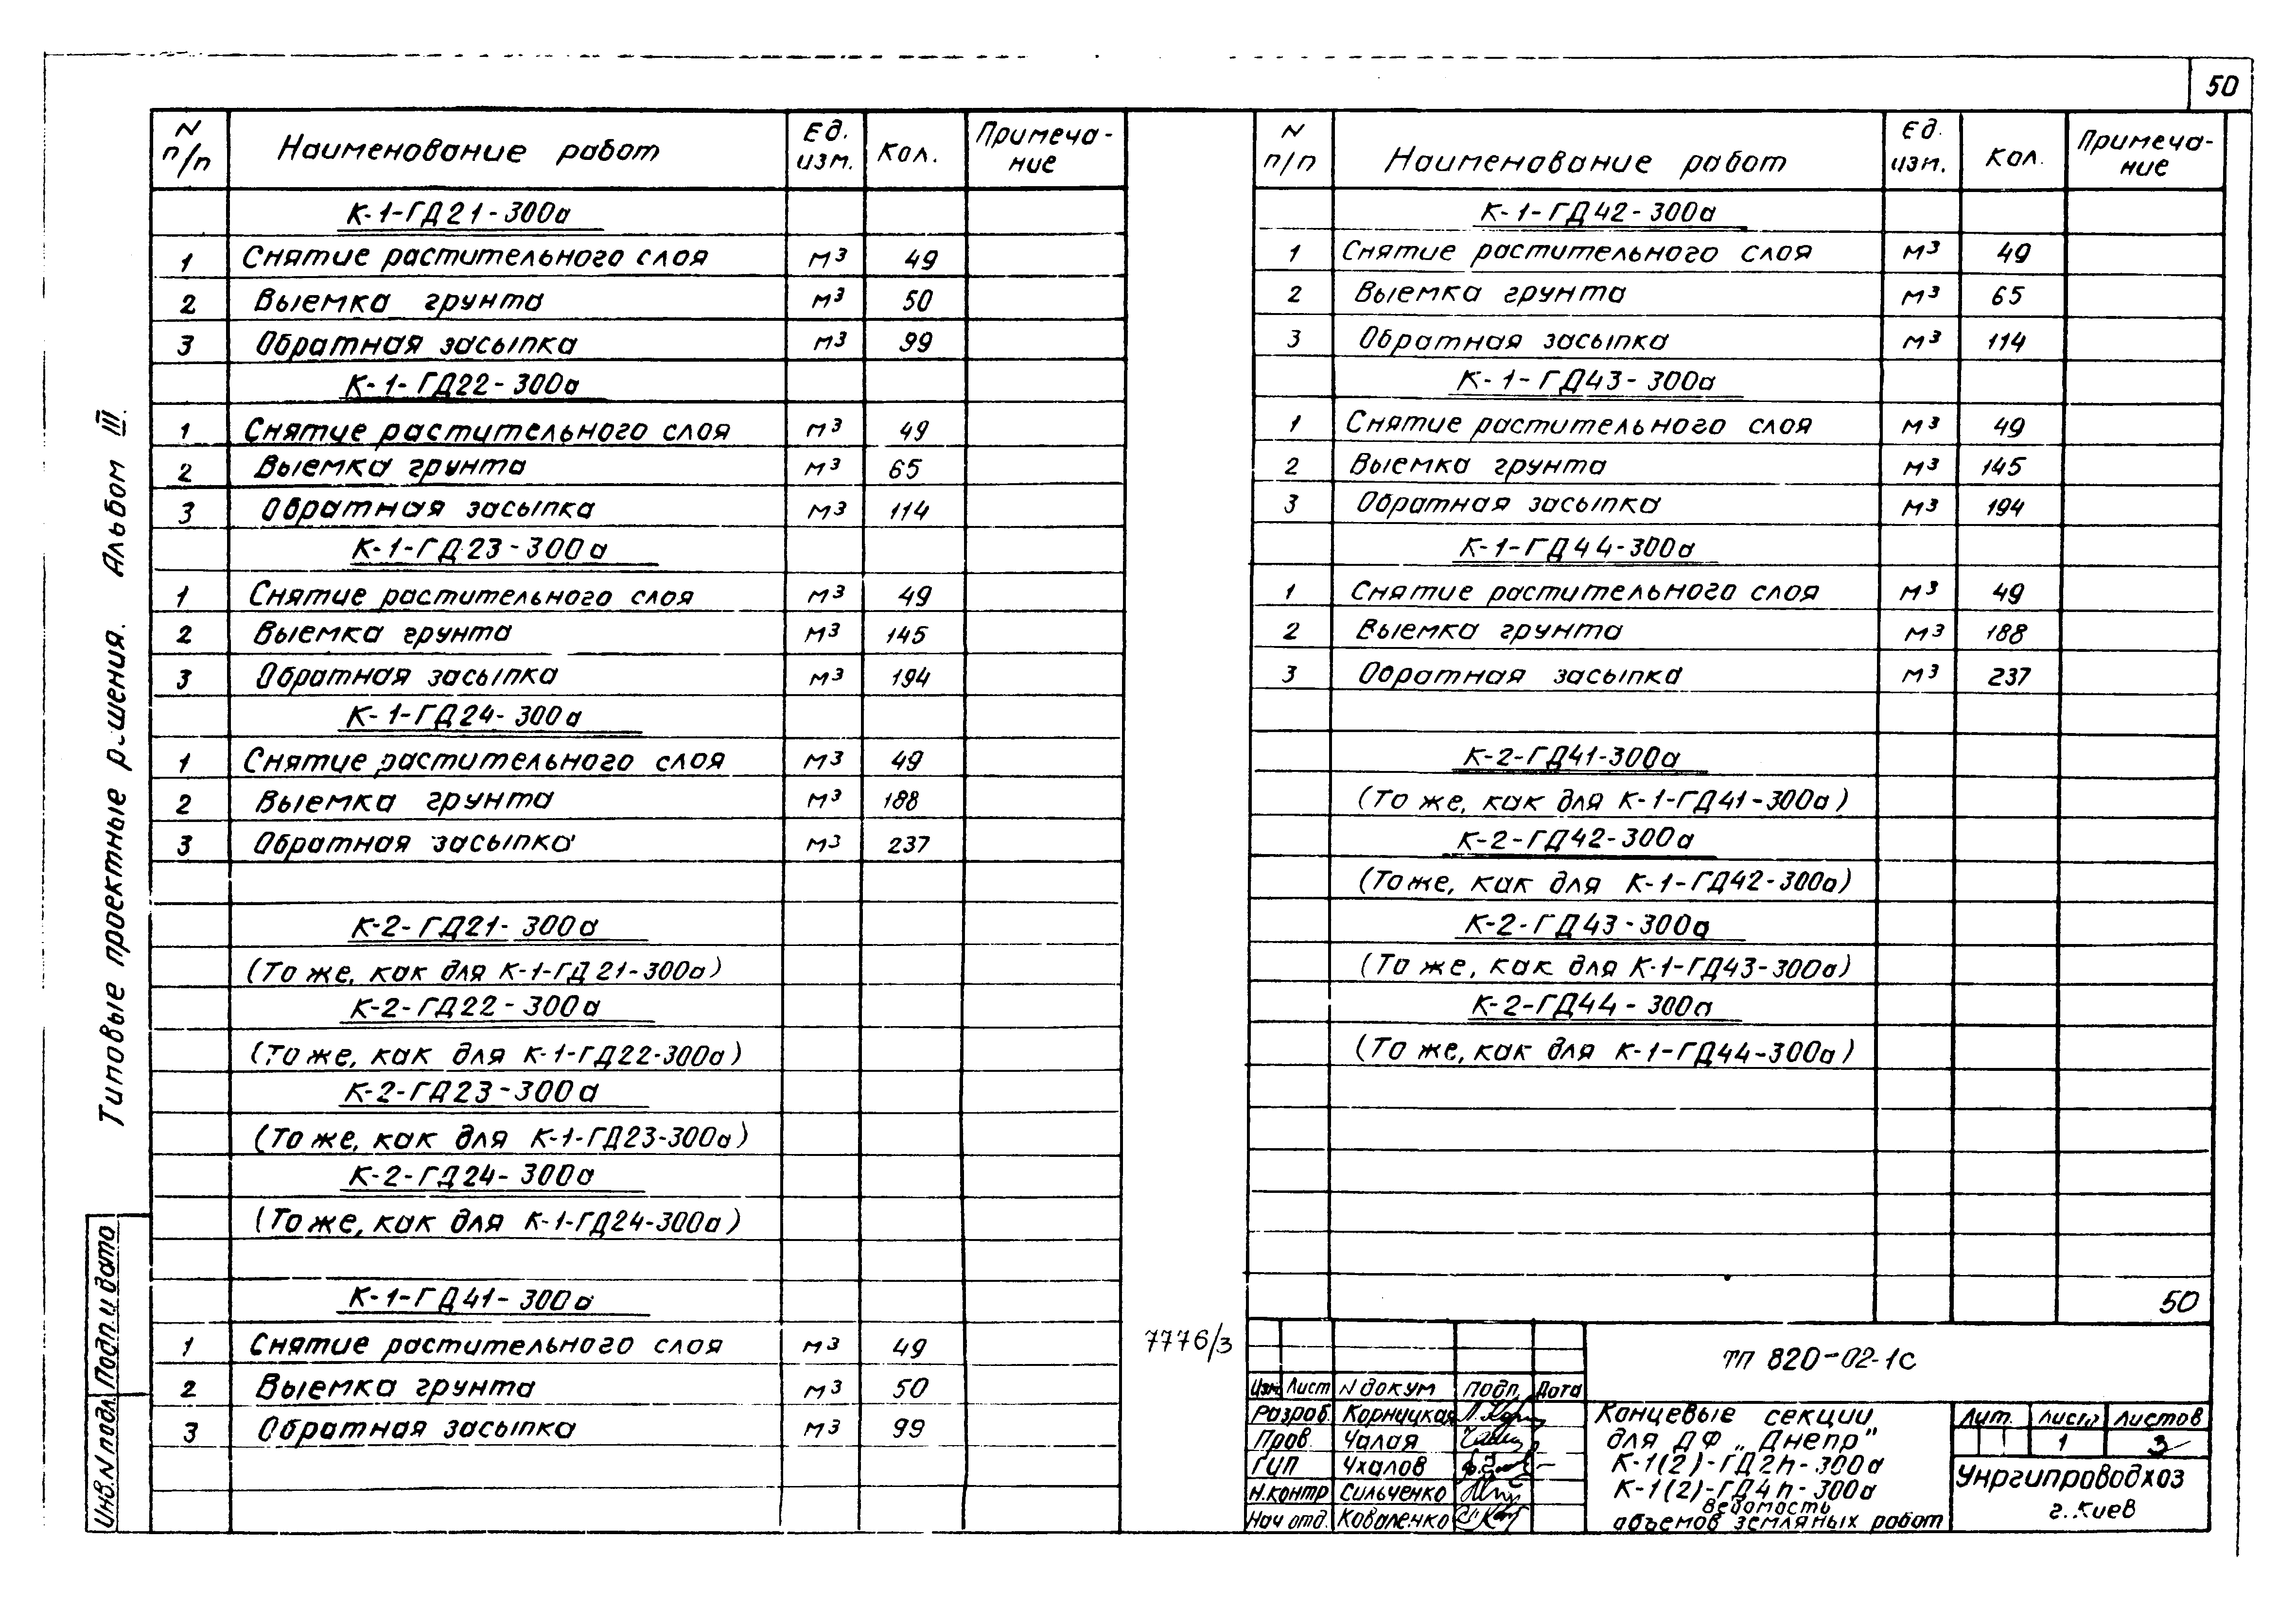 50
N п/п Наименование работ Ед. изм. Кол. Примеча-ние
К-1-ГД21-300а
1 Снятие растительного слоя м3 49
2 Выемка грунта м3 50
3 Обратная засыпка м3 99
К-1-ГД22-300а
1 Снятие растительного слоя м3 49
2 Выемка грунта м3 65
3 Обратная засыпка м3 114
К-1-ГД23-300а
1 Снятие растительного слоя м3 49
2 Выемка грунта м3 145
3 Обратная засыпка м3 194
К-1-ГД24-300а
1 Снятие растительного слоя м3 49
2 Выемка грунта м3 188
3 Обратная засыпка м3 237
К-2-ГД21-300а
(То же, как для К-1-ГД21-300а)
К-2-ГД22-300а
(То же, как для К-1-ГД22-300а)
К-2-ГД23-300а
(То же, как для К-1-ГД23-300а)
К-2-ГД24-300а
(То же, как для К-1-ГД24-300а)
К-1-ГД41-300а
1 Снятие растительного слоя м3 49
2 Выемка грунта м3 50
3 Обратная засыпка м3 99
N п/п Наименование работ Ед. изм. Кол. Примеча-ние
К-1-ГД42-300а
1 Снятие растительного слоя м3 49
2 Выемка грунта м3 65
3 Обратная засыпка м3 114
К-1-ГД43-300а
1 Снятие растительного слоя м3 49
2 Выемка грунта м3 145
3 Обратная засыпка м3 194
К-1-ГД44-300а
1 Снятие растительного слоя м3 49
2 Выемка грунта м3 188
3 Обратная засыпка м3 237
К-2-ГД41-300а
(То же, как для К-1-ГД41-300а)
К-2-ГД42-300а
(То же, как для К-1-ГД42-300а)
К-2-ГД43-300а
(То же, как для К-1-ГД43-300а)
К-2-ГД44-300а
(То же, как для К-1-ГД44-300а)
50
Типовые проектные решения. Альбом III.
Инв.N подл. Подп. и дата
7776/3
ТП 820-02-1С
Изм Лист N докум Подп. Дата
Разраб. Корницкая
Пров. Чалая
ГИП Чхалов
Н.контр Сильченко
Нач отд. Коваленко
Концевые секции
для ДФ „Днепр"
К-1(2)-ГД2h-300а
К-1(2)-ГД4h-300а
Ведомость
объемов земляных работ
Лит. Лист Листов
1 3
Укргипроводхоз
г. Киев